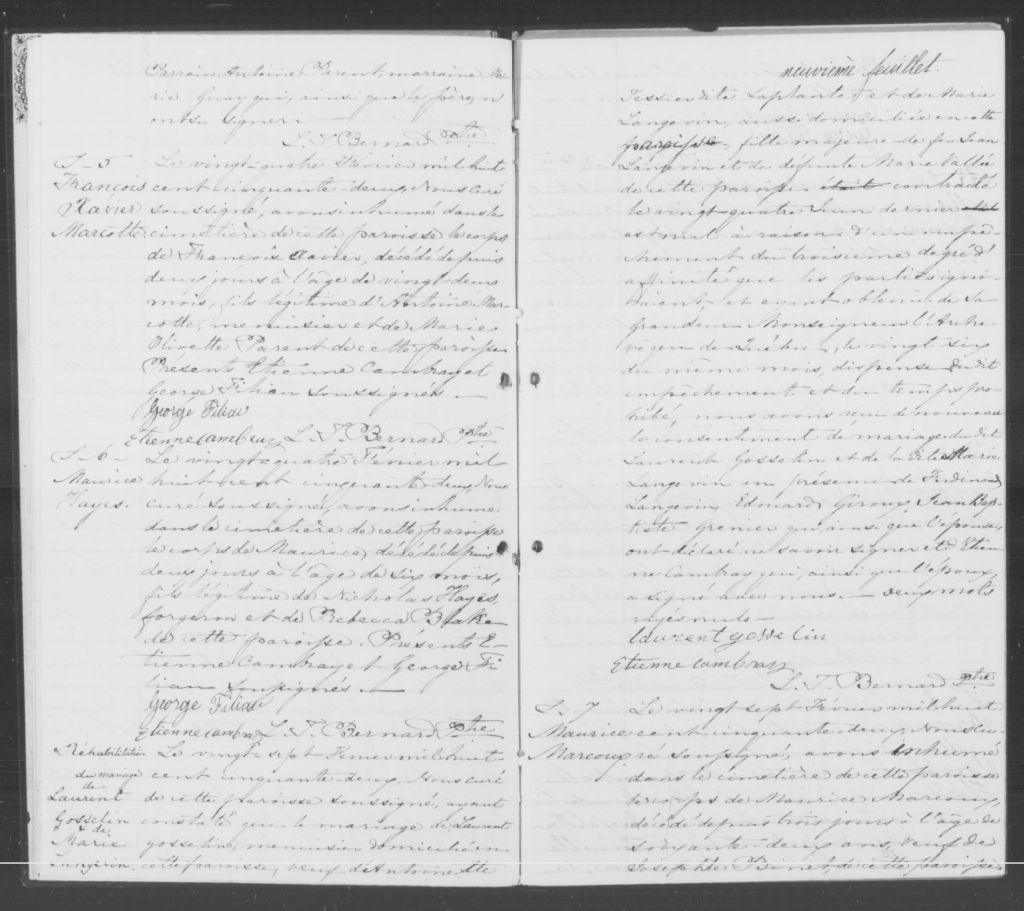 Parrain Antoine Parent, marraine Ma-
rie Guay qui, ainsi que le père, n'
ont su signer.
L. T. Bernard Ptre
S-5
François
Xavier
Marcotte
Le vingt-quatre Février mil huit
cent cinquante-deux, Nous curé
soussigné, avons inhumé dans le
cimetière de cette paroisse le corps
de François Xavier, décédé depuis
deux jours à l'âge de vingt-deux
mois, fils légitime d'Antoine Mar-
cotte, menuisier et de Marie
Olivette Parent de cette paroisse
Présents Etienne Cambray et
George Filian soussignés.
George Filian
Etienne Cambray L. T. Bernard Ptre
S-6
Maurice
Hayes.
Le vingt-quatre Février mil
huit cent cinquante deux, Nous
curé soussigné, avons inhumé
dans le cimetière de cette paroisse
le corps de Maurice, décédé depuis
deux jours à l'âge de six mois,
fils légitime de Nicholas Hayes,
forgeron et de Rebecca Blake
de cette paroisse. Présents E-
tienne Cambray et George Fi-
lian soussignés.
George Filian
Etienne Cambray L. T. Bernard Ptre
Réhabilitation
du mariage
de
Laurent
Gosselin
& de
Marie
Langevin.
Le vingt sept Février mil huit
cent cinquante-deux, Nous curé
de cette paroisse soussigné, ayant
constaté que le mariage de Laurent
Gosselin, menuisier domicilié en
cette paroisse, veuf d'Antoinette
neuvième feuillet.
Tessier dite Laplante, et de Marie
Langevin, aussi domiciliée en cette
paroisse, fille majeure de feu Jean
Langevin et de défunte Marie Vallée
de cette paroisse était contracté
le vingt-quatre Juin dernier
est nul à raison d'un empê-
chement du troisième degré d'
affinité que les parties igno-
raient, et ayant obtenu de Sa
Grandeur Monseigneur l'Arche-
vêque de Québec, le vingt six
du même mois, dispense du dit
empêchement et du temps pro-
hibé, nous avons reçu de nouveau
le consentement de mariage du dit
Laurent Gosselin et de la dite Marie
Langevin en présence de Ferdinand
Langevin, Edouard Giroux, Jean Bap-
tiste Grenier qui, ainsi que l'épouse,
ont déclaré ne savoir signer et d'Etien-
ne Cambray qui, ainsi que l'époux,
a signé avec nous. Deux mots
rayés nuls.
Laurent gosselin
Etienne Cambray
L. T. Bernard Ptre
S-7
Maurice
Marcoux
Le vingt sept Février mil huit
cent cinquante-deux, Nous cu-
ré soussigné, avons inhumé
dans le cimetière de cette paroisse
le corps de Maurice Marcoux,
décédé depuis trois jours à l'âge de
soixante-deux ans, veuf de
Josephte Binet, de cette paroisse